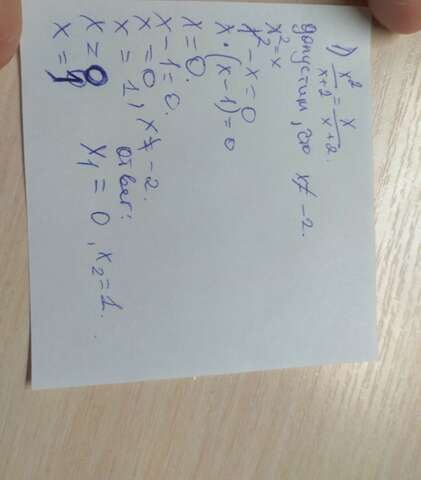 1) x²/x+2 = x/x+2.
допустим, что x ≠ -2.
x² = x
x² - x = 0
x · (x - 1) = 0
x = 0.
x - 1 = 0.
x = 0
x = 1, x ≠ -2.
x = 0 Ответ:
x = 1 x₁ = 0, x₂ = 1.